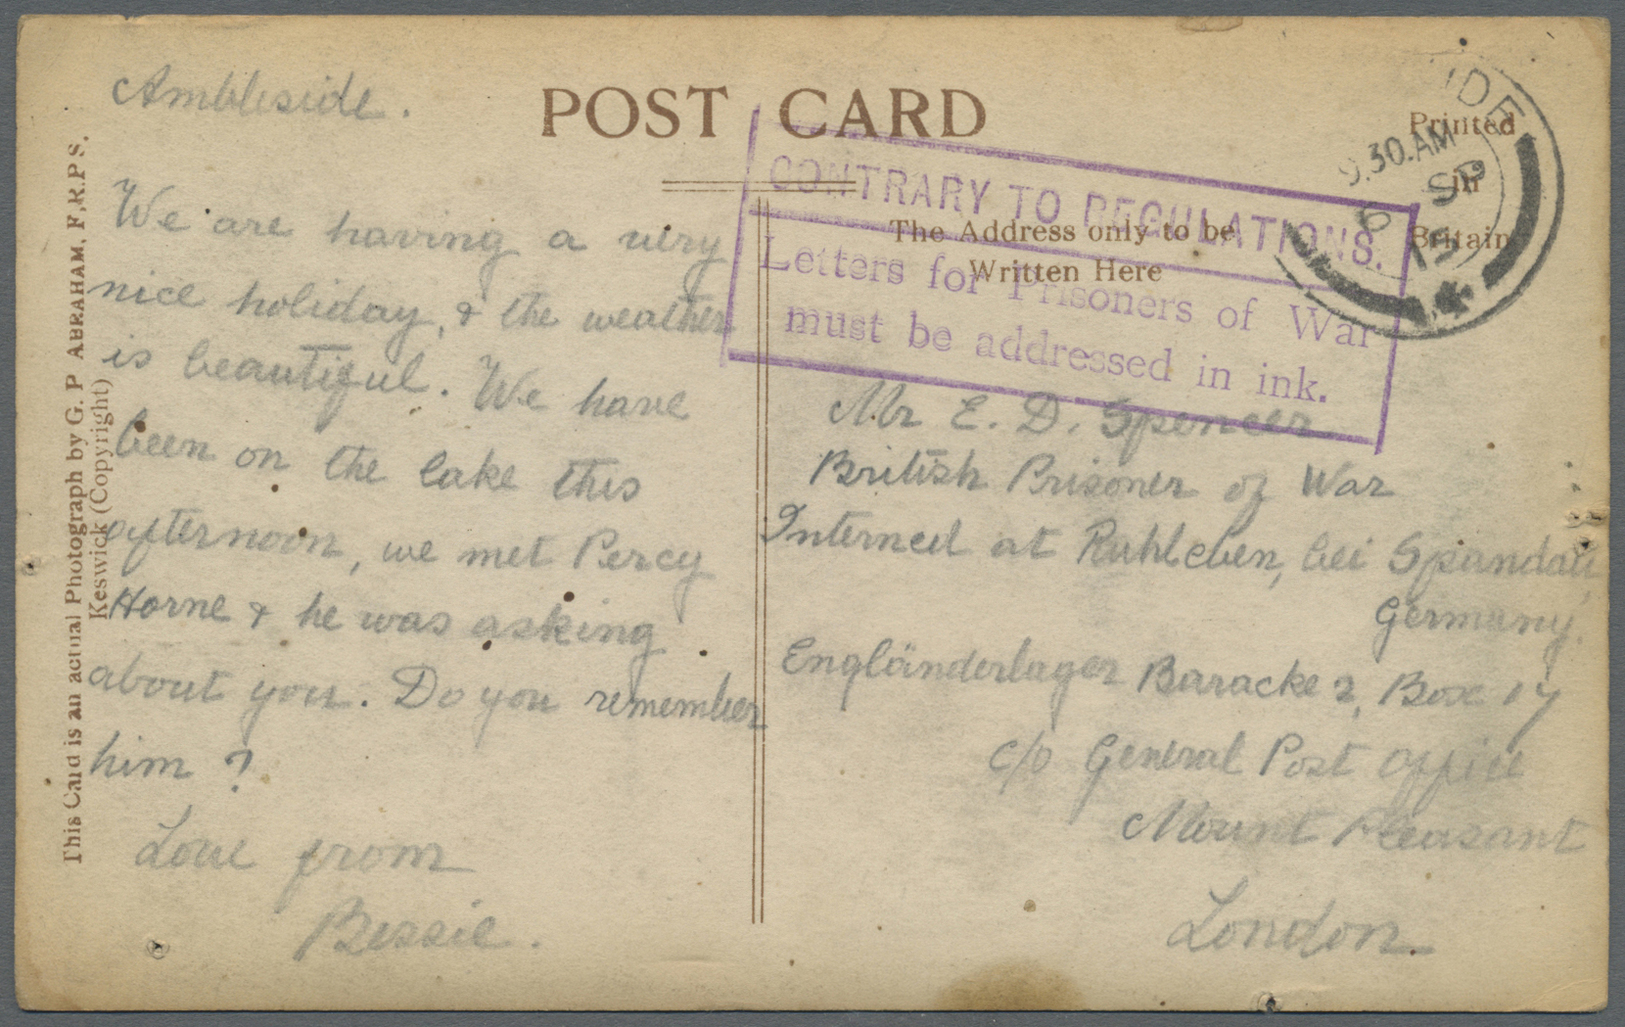 POST CARD
Ambleside.
We are having a very
nice holiday, & the weather
is beautiful. We have
been on the lake this
afternoon, we met Percy
Horne & he was asking
about you. Do you remember
him ?
Love from
Bessie.
This Card is an actual Photograph by G. P. ABRAHAM, F.R.P.S.
Keswick (Copyright)
Printed
in
Britain
The Address only to be
Written Here
CONTRARY TO REGULATIONS.
Letters for Prisoners of War
must be addressed in ink.
9.30.AM
SP
Mr E. D. Spencer
British Prisoner of War
Interned at Ruhleben, bei Spandau,
Germany.
Engländerlager Baracke 2, Box 17
c/o General Post Office
Mount Pleasant
London.